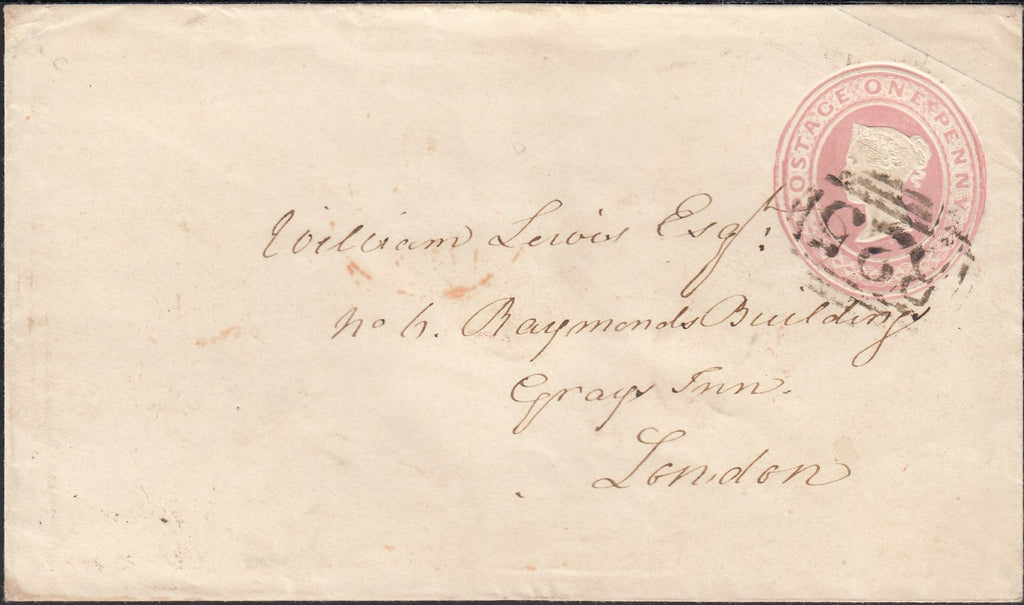 POSTAGE·ONE·PENNY
William Lewis Esqr.
No 6. Raymonds Buildings
Grays Inn.
London